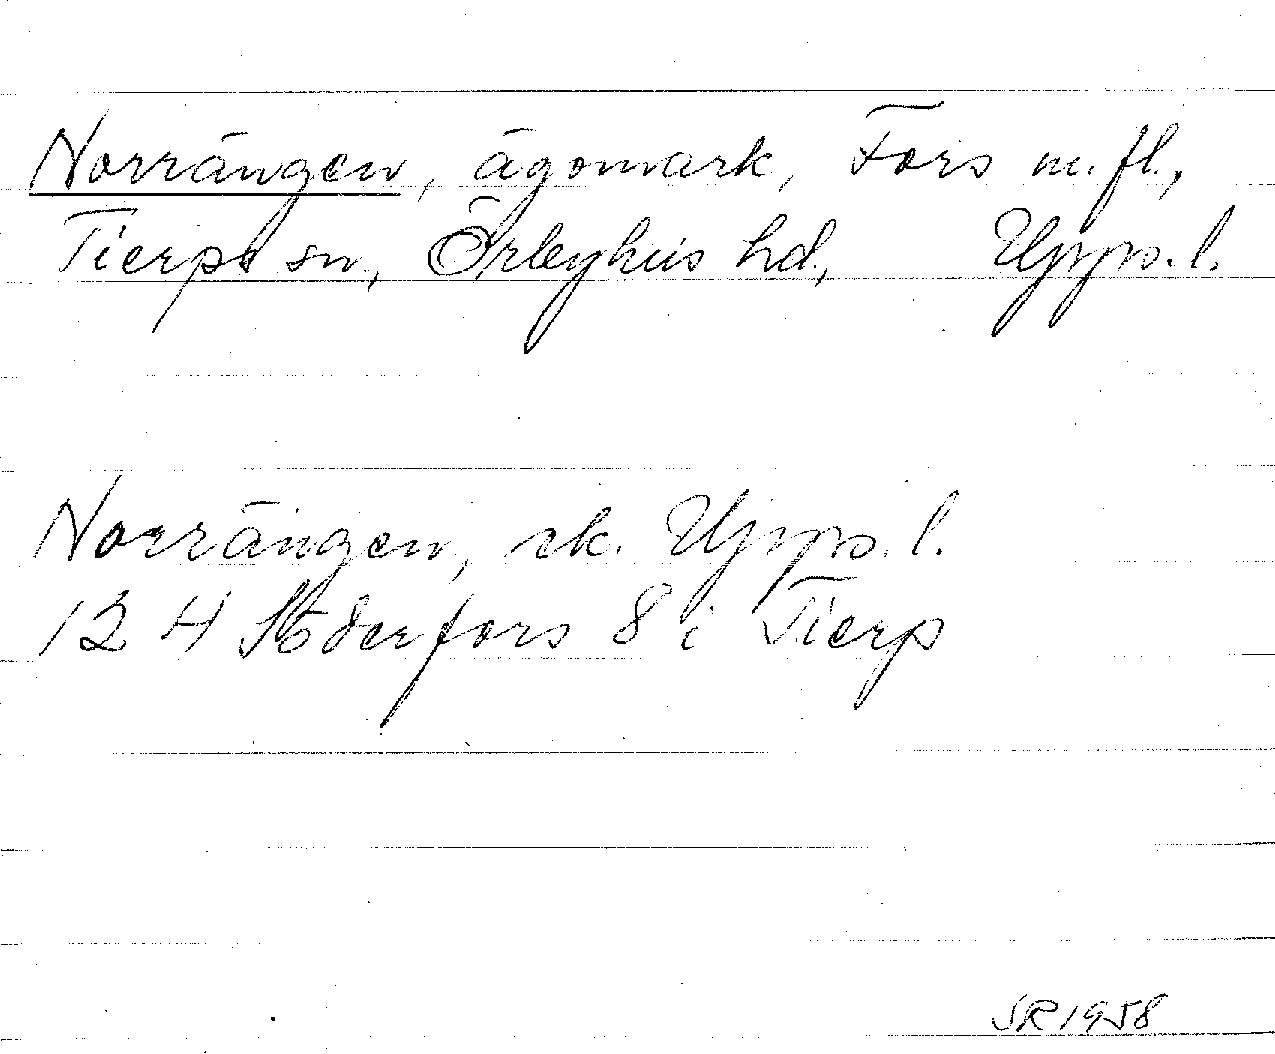 Norrängen, ägomark, Fors m.fl.,
Tierps sn, Örbyhus hd, Upps.l.
Norrängen, ek. Upps.l.
12 H Söderfors 8 i Tierp
SR 1958